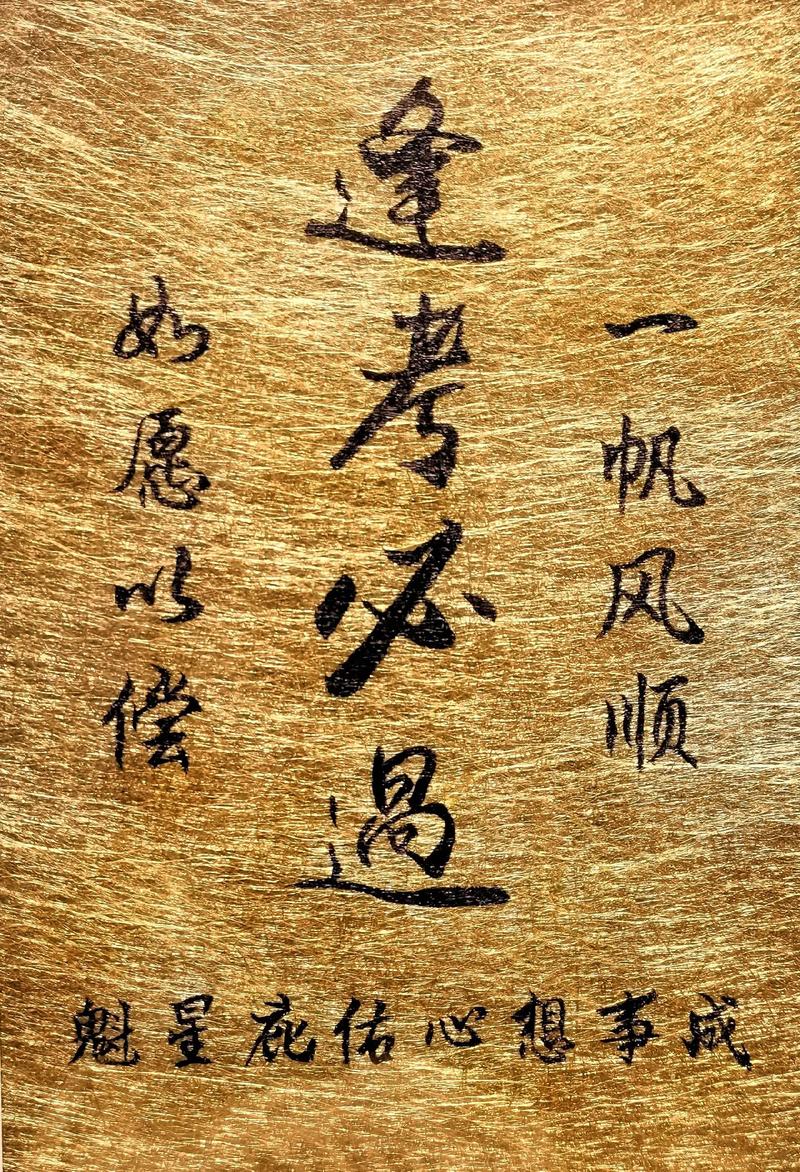 逢考必過
一帆风顺
如愿以偿
魁星庇佑心想事成